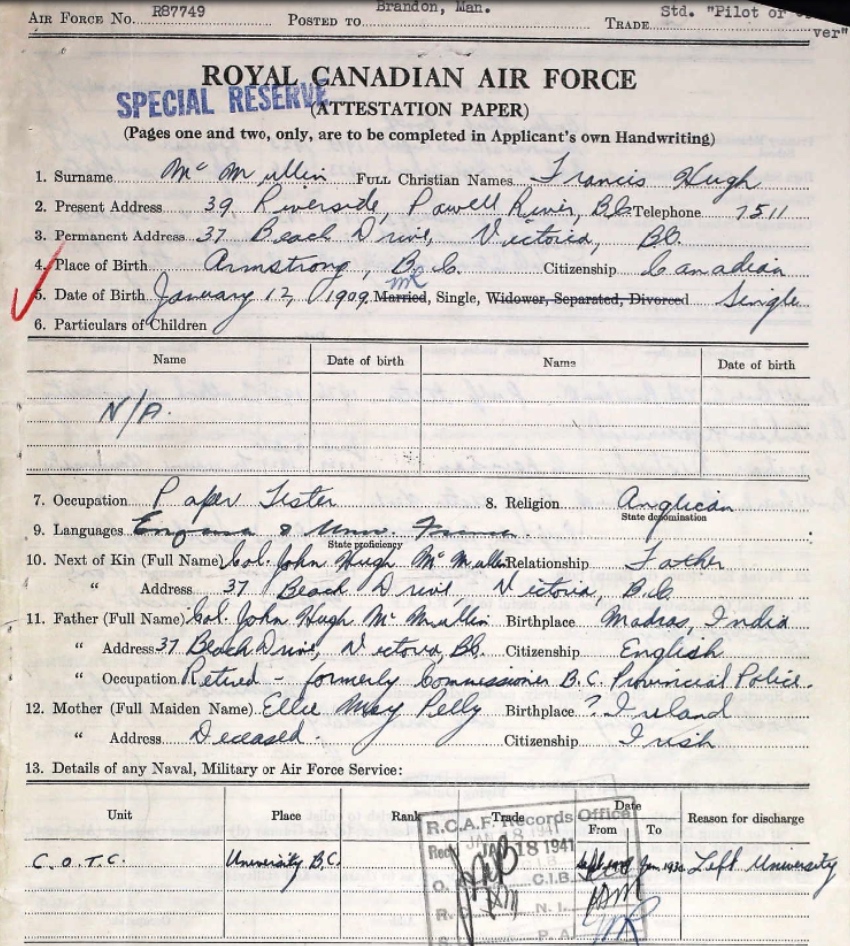 AIR FORCE NO. R87749 POSTED TO Brandon, Man. TRADE Std. "Pilot or
ver"
ROYAL CANADIAN AIR FORCE
SPECIAL RESERVE
(ATTESTATION PAPER)
(Pages one and two, only, are to be completed in Applicant's own Handwriting)
1. Surname McMullin FULL Christian Names Francis Hugh
2. Present Address 39 Riverside, Powell River, B.C. Telephone 7511
3. Permanent Address 37 Beach Drive, Victoria, BC.
4. Place of Birth Armstrong, B.C. Citizenship Canadian
5. Date of Birth January 12, 1909. Married, Single, Widower, Separated, Divorced Single
6. Particulars of Children
Name Date of birth Name Date of birth
N/A.
7. Occupation Paper Tester 8. Religion Anglican
State denomination
9. Languages
State proficiency
10. Next of Kin (Full Name) Col. John Hugh McMullin Relationship Father
" Address 37 Beach Drive, Victoria, B.C.
11. Father (Full Name) Col. John Hugh McMullin Birthplace Madras, India
" Address 37 Beach Drive, Victoria, BC. Citizenship English
" Occupation Retired - formerly Commissioner B.C. Provincial Police.
12. Mother (Full Maiden Name) Ellie May Pelly Birthplace ? Ireland
" Address Deceased. Citizenship Irish
13. Details of any Naval, Military or Air Force Service:
Unit Place Rank Trade Date From To Reason for discharge
R.C.A.F. Records Office
JAN 18 1941
Rec JAN 18 1941
C.O.T.C. University B.C. Left University
C.I.B.
N. I.
P. A.